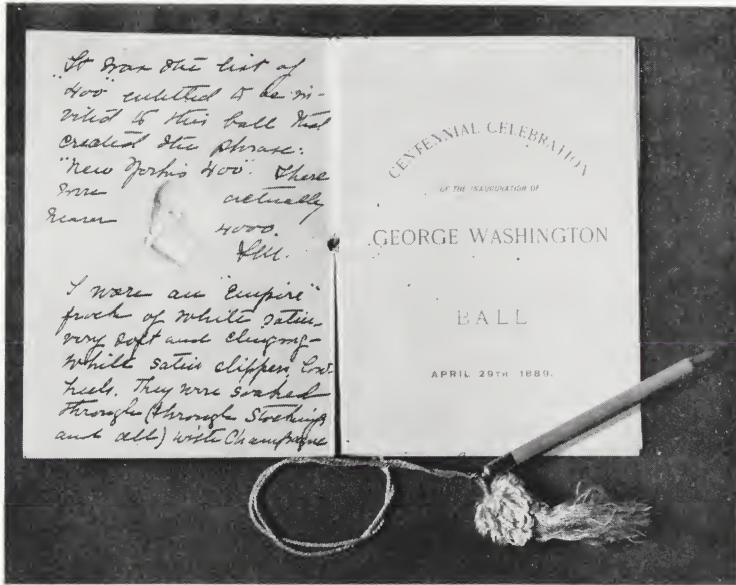 "It was the list of
"400" entitled to be in-
vited to this ball that
created the phrase:
"New York's 400". There
were actually
nearer 4000.
I wore an "Empire"
frock of white satin,
very soft and clinging—
white satin slippers, low
heels. They were soaked
through (through stockings
and all) with Champagne
CENTENNIAL CELEBRATION
OF THE INAUGURATION OF
GEORGE WASHINGTON
BALL
APRIL 29TH 1889.